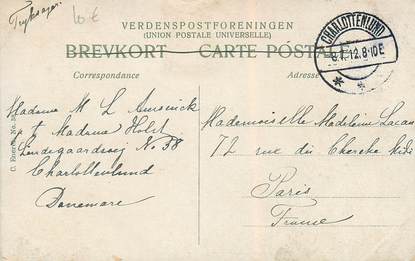 Tryksager.
10 €
VERDENSPOSTFORENINGEN
(UNION POSTALE UNIVERSELLE)
BREVKORT — CARTE POSTALE
Correspondance
Adresse
CHARLOTTENLUND
12.8-10E
Madame M L
Madame Holst
Lindegaardsvej No 38
Charlottenlund
Danemarc
Mademoiselle Madeleine Lacau
72 rue du Cherche Midi
Paris
France